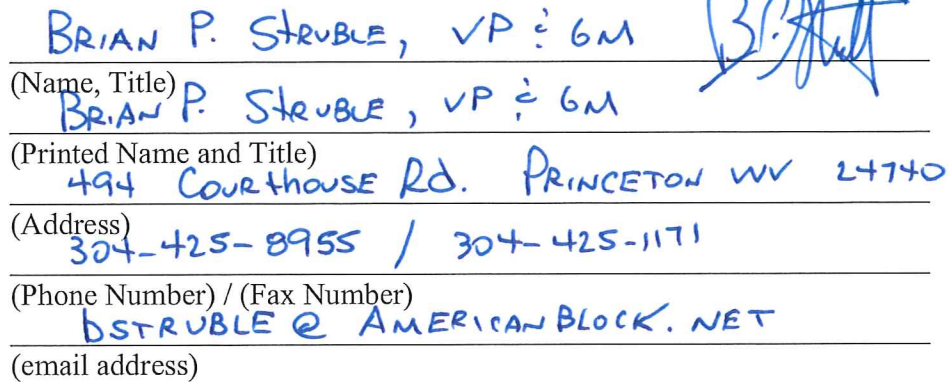 BRIAN P. STRUBLE, VP & GM
(Name, Title)
BRIAN P. STRUBLE, VP & GM
(Printed Name and Title)
494 COURTHOUSE Rd. PRINCETON WV 24740
(Address)
304-425-8955 / 304-425-1171
(Phone Number) / (Fax Number)
bSTRUBLE @ AMERICANBLOCK.NET
(email address)